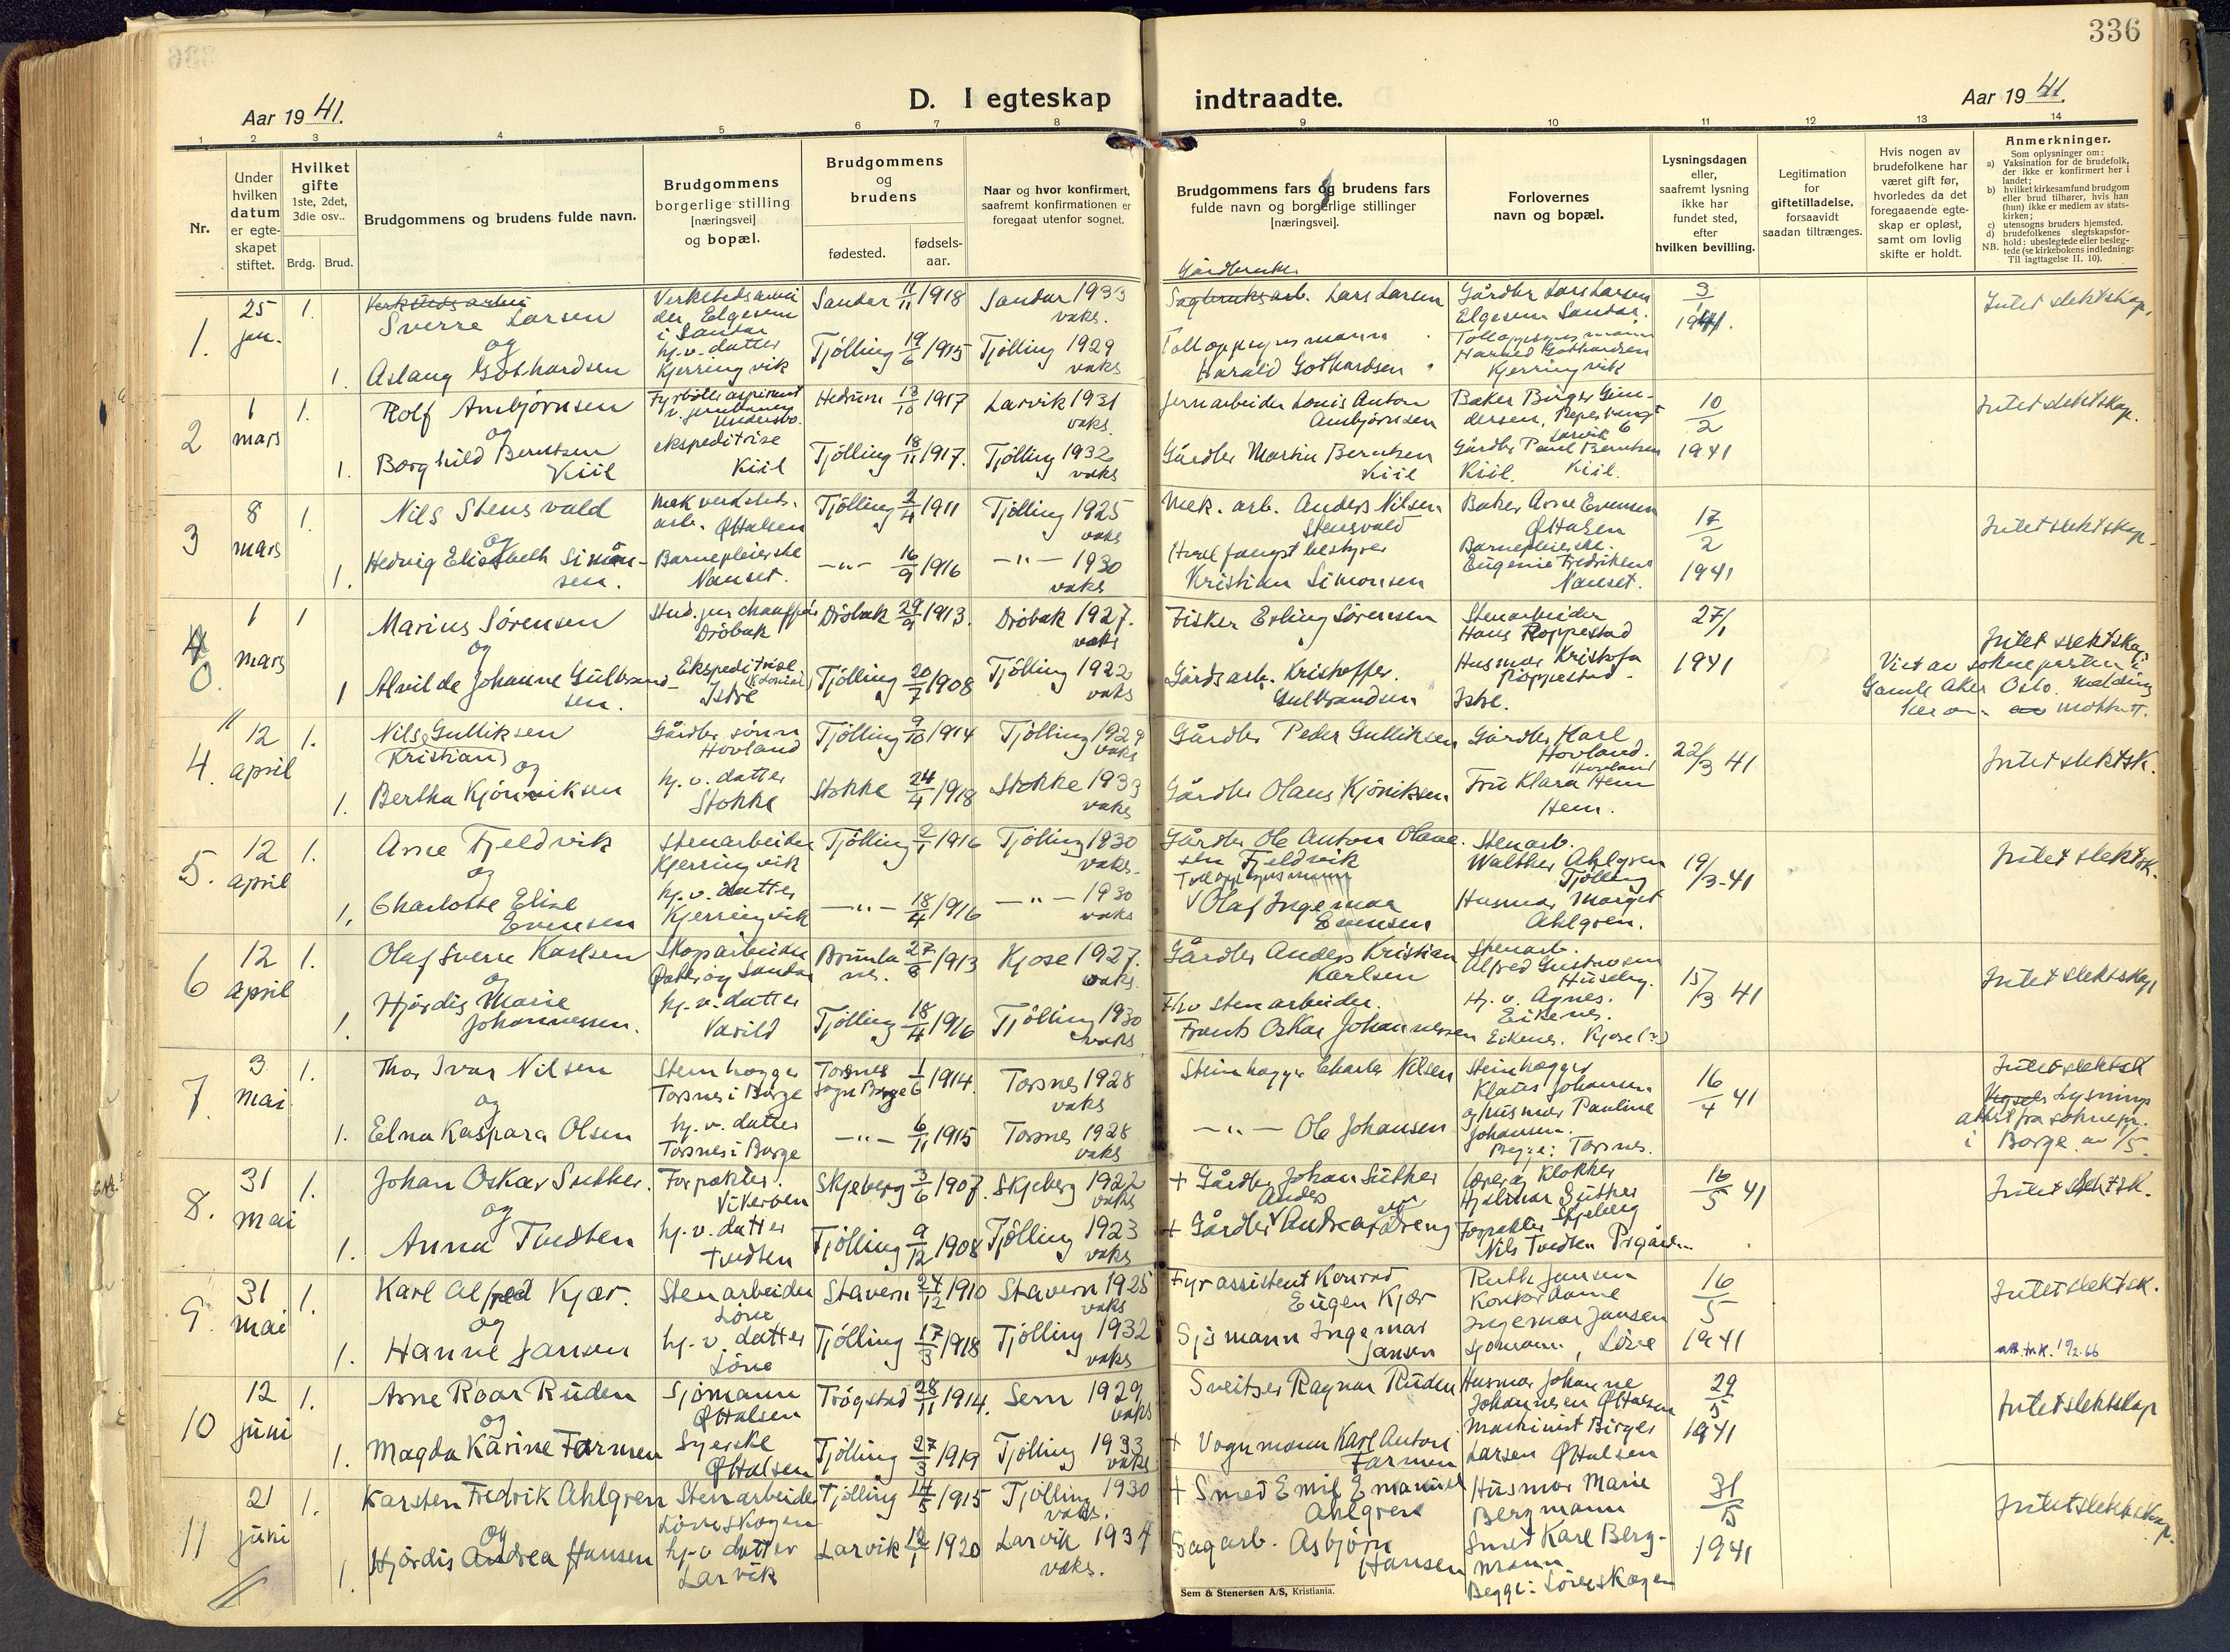 336
D. I egteskap indtraadte.
Aar 19 41.
Aar 19 41.
1 2 3 4 5 6 7 8 9 10 11 12 13 14
Nr.
Under hvilken datum er egteskapet stiftet.
Hvilket gifte 1ste, 2det, 3die osv..
Brdg. Brud.
Brudgommens og brudens fulde navn.
Brudgommens borgerlige stilling [næringsvei] og bopæl.
Brudgommens og brudens
fødested.
fødsels-aar.
Naar og hvor konfirmert, saafremt konfirmationen er foregaat utenfor sognet.
Brudgommens fars og brudens fars fulde navn og borgerlige stillinger [næringsvei].
Forlovernes navn og bopæl.
Lysningsdagen eller, saafremt lysning ikke har fundet sted, efter hvilken bevilling.
Legitimation for giftetilladelse, forsaavidt saadan tiltrænges.
Hvis nogen av brudefolkene har været gift før, hvorledes da det foregaaende egteskap er opløst, samt om lovlig skifte er holdt.
Anmerkninger.
Som oplysninger om:
a) Vaksination for de brudefolk, der ikke er konfirmert her i landet;
b) hvilket kirkesamfund brudgom eller brud tilhører, hvis han (hun) ikke er medlem av statskirken;
c) utensogns bruders hjemsted.
d) brudefolkenes slegtskapsforhold: ubeslegtede eller beslegtede (se kirkebokens indledning:
NB. Til iagttagelse II. 10).
1. 25 jan. 1. Sverre Larsen Verkstedsarbei der Elgesem i Sandar Sandar 11/11 1918 Sandar 1933 vaks.
Gårdbruker
Sagbruksarb. Lars Larsen Gårdbr Lars Larsen Elgesem Sandar. 3/1 1941. Intet slektskap.
og
1. Aslaug Gothardsen hj.v. datter Kjerringvik Tjölling 19/6 1915 Tjölling 1929 vaks
Tolloppsynsmann Harald Gothardsen Tolloppsynsmann Harald Gothardsen Kjerringvik
2 1 mars 1. Rolf Ambjørnsen Hedrum 13/10 1917 Larvik 1931 vaks.
Jernarbeider Louis Anton Ambjørnsen Baker Birger Gundersen, Larvik 10/2 1941 Intet slektskap.
og
1. Borghild Berntsen Kiil ekspeditrise Kiil Tjölling 18/11 1917. Tjölling 1932 vaks
Gårdbr Martin Berntsen Kiil Gårdbr Paul Berntsen Kiil. Kiil.
3 8 mars 1. Nils Stensvold Mek verksteds. arb. Ø Halsen Tjölling 2/4 1911 Tjölling 1925 vaks
Mek. arb. Anders Nilsen Stensvold Baker Arne Evensen Ø Halsen 17/2 1941 Intet slektskap.
og
1. Hedvig Elisabeth Simonsen. Barnepleierske Nanset. —"— 16/9 1916 —"— 1930 vaks
Hvalfangstbestyrer Kristian Simonsen Barnepleierske. Eugenie Fredriksen Nanset.
0. 1 mars 1 Marius Sörensen Stud. jur chauffør Dröbak Dröbak 29/9 1913. Dröbak 1927. vaks
Fisker Erling Sörensen Stenarbeider Hans Roppestad 27/1 1941 Intet slektskap
og
1 Alvilde Johanne Gulbrandsen. Ekspeditrise (kolonial) Istre Tjölling 20/7 1908 Tjölling 1922 vaks
Gårdsarb. Kristoffer Gulbrandsen Husmor Kristofa Roppestad. Istre. Viet av soknepresten i Gamle Aker Oslo. Melding her om mottatt.
4. 12 april 1. Nils Gulliksen (Kristian) Gårdbr sönn Hovland Tjölling 9/10 1914 Tjölling 1929 vaks
Gårdbr Peder Gulliksen Gårdbr Karl Hovland. Hovland 22/3 41 Intet slektsk.
og
1. Bertha Kjönniksen hj.v. datter Stokke Stokke 24/4 1918 Stokke 1933 vaks
Gårdbr Olaus Kjöniksen Fru Klara Hem Hem.
5. 12 april 1. Arne Fjeldvik Stenarbeider Kjerringvik Tjölling 2/1 1916 Tjölling 1930 vaks.
Gårdbr Ole Anton Olavesen Fjeldvik Stenarb. Walther Ahlgren Tjölling 19/3-41 Intet slektsk.
og
1. Charlotte Elise Evensen hj.v. datter Kjerringvik —"— 18/4 1916 —"— 1930 vaks
Tolloppsynsmann Olaf Ingemar Evensen Husmor Margit Ahlgren.
6 12 april 1. Olaf Sverre Karlsen Skogsarbeider Sandar Brunlanes. 27/8 1913 Kjose 1927. vaks.
Gårdbr Anders Kristian Karlsen Stenarb. Alfred Gustavsen Huseby. 15/3 41 Intet slektskap
og
1. Hjördis Marie Johannessen. hj.v. datter Varild Tjölling 18/4 1916 Tjölling 1930 vaks
Fhv stenarbeider. Frants Oskar Johannessen Hj. v. Agnes. Eikenes. Eikenes. Kjose (?)
7. 3 mai 1. Thor Ivar Nilsen Stenhogger Torsnes i Borge Torsnes sogn Borge 1/6 1914. Torsnes 1928 vaks
Steinhogger Charles Nilsen Steinhogger Klaus Johansen og husmor Pauline Johansen. Begge: Torsnes. 16/4 41 Intet slektsk
og
1. Elna Kaspara Olsen hj.v. datter Torsnes i Borge —"— 6/11 1915 Torsnes 1928 vaks
—"— Ole Johansen Lysnings attest fra soknepr. i Borge av 1/5.
8. 31 mai 1. Johan Oskar Suther. Forpakter. Vikerven Skjeberg 3/6 1907. Skjeberg 1922 vaks
+ Gårdbr Johan Suther Lærer og klokker Hjalmar Suther Skjeberg 16/5 41 Intet slektsk.
og
1. Anna Tvedten hj.v. datter Tvedten Tjölling 9/12 1908 Tjölling 1923 vaks
+ Gårdbr Anders Forpakter Nils Tvedten
9. 31 mai 1. Karl Alfred Kjær. Stenarbeider Löve Stavern 24/12 1910 Stavern 1925 vaks
Fyrassistent Konrad Eugen Kjær Ruth Jansen Kontordame 16/5 1941 Intet slektsk.
og
1. Hanne Jansen hj.v. datter Löve Tjölling 17/3 1918 Tjölling 1932 vaks
Sjömann Ingemar Jansen Ingemar Jansen Sjömann, Löve
10 12 juni 1. Arne Roar Ruden Sjömann Ø Halsen Trögstad 28/11 1914. Sem 1929 vaks
Sveitser Ragnar Ruden Husmor Johanne Johannesen Ø Halsen 29/5 1941 Intet slektskap
og
1. Magda Karine Farmen Syerske Ø Halsen Tjölling 27/3 1919 Tjölling 1933 vaks
+ Vognmann Karl Anton Farmen Maskinist Birger Larsen Ø Halsen
11 21 juni 1. Karsten Fredrik Ahlgren Stenarbeider Löveskogen Tjölling 14/5 1915 Tjölling 1930 vaks.
+ Smed Emil Emanuel Ahlgren Husmor Marie Bergmann 31/5 1941 Intet slektskap.
og
1. Hjördis Andrea Hansen hj.v datter Larvik Larvik 12/1 1920 Larvik 1934 vaks.
Sagarb. Asbjörn Hansen Smed Karl Bergmann Begge: Löveskogen
Sem & Stenersen A/S, Kristiania.